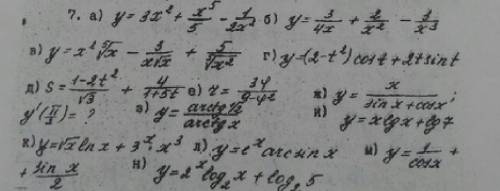 7. а) y=3x²+x⁵/5-1/2x² б) y=3/4x+2/x²-3/x³
в) y=x²⁵√x-3/x√x+5/⁵√x² г) y=(2-t²)cost+2tsint
д) S=1-2t²/√3+4/1+5t е) r=3φ/9-φ² ж) y=x/sinx+cosx;
y'(π/3)=? з) y=arctg /arcctgx и) y=xlgx+lg7
к) y=√x lnx+3ˣ·x³ л) y=eˣarcsinx м) y=1/cosx+
+sinx/2 н) y=2ˣlog₂x+log₂5